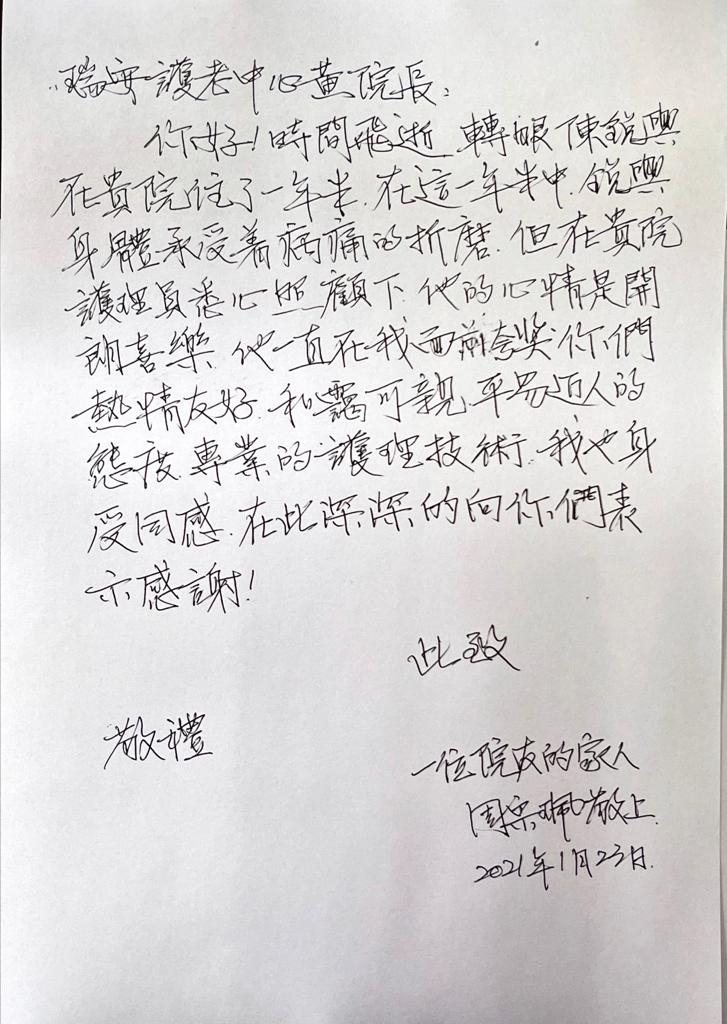 瑞安護老中心黃院長:
你好!時間飛逝 轉眼陳銳興
在貴院住了一年半.在這一年半中.銳興
身體承受着病痛的折磨.但在貴院
護理員悉心照顧下.他的心情是開
朗喜樂.他一直在我面前夸奖你們
熱情友好.和靄可親.平易近人的
態度.專業的護理技術.我也身
受同感.在此深深的向你們表
示感謝!
此致
敬禮
一位院友的家人
周 珮敬上.
2021年1月23日.